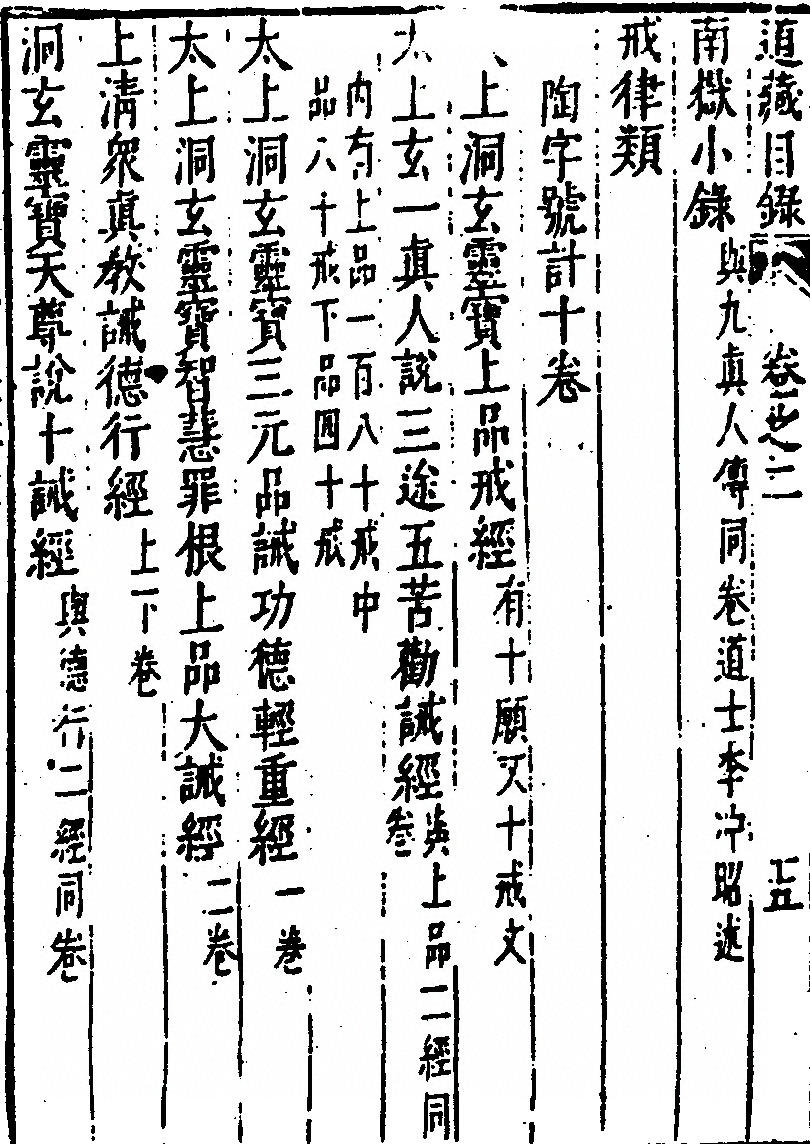 道藏目錄 卷之二 十五
南嶽小錄 與九真人傳同卷道士李冲昭述
戒律類
陶字號計十卷
上洞玄靈寶上品戒經 有十願又十戒文
太上玄一真人說三途五苦勸誡經 與上品二經同卷
內有上品一百八十戒中
品八十戒下品四十戒
太上洞玄靈寶三元品誡功德輕重經 一卷
太上洞玄靈寶智慧罪根上品大誡經 二卷
上清衆真教誡德行經 上下卷
洞玄靈寶天尊說十誡經 與德行二經同卷